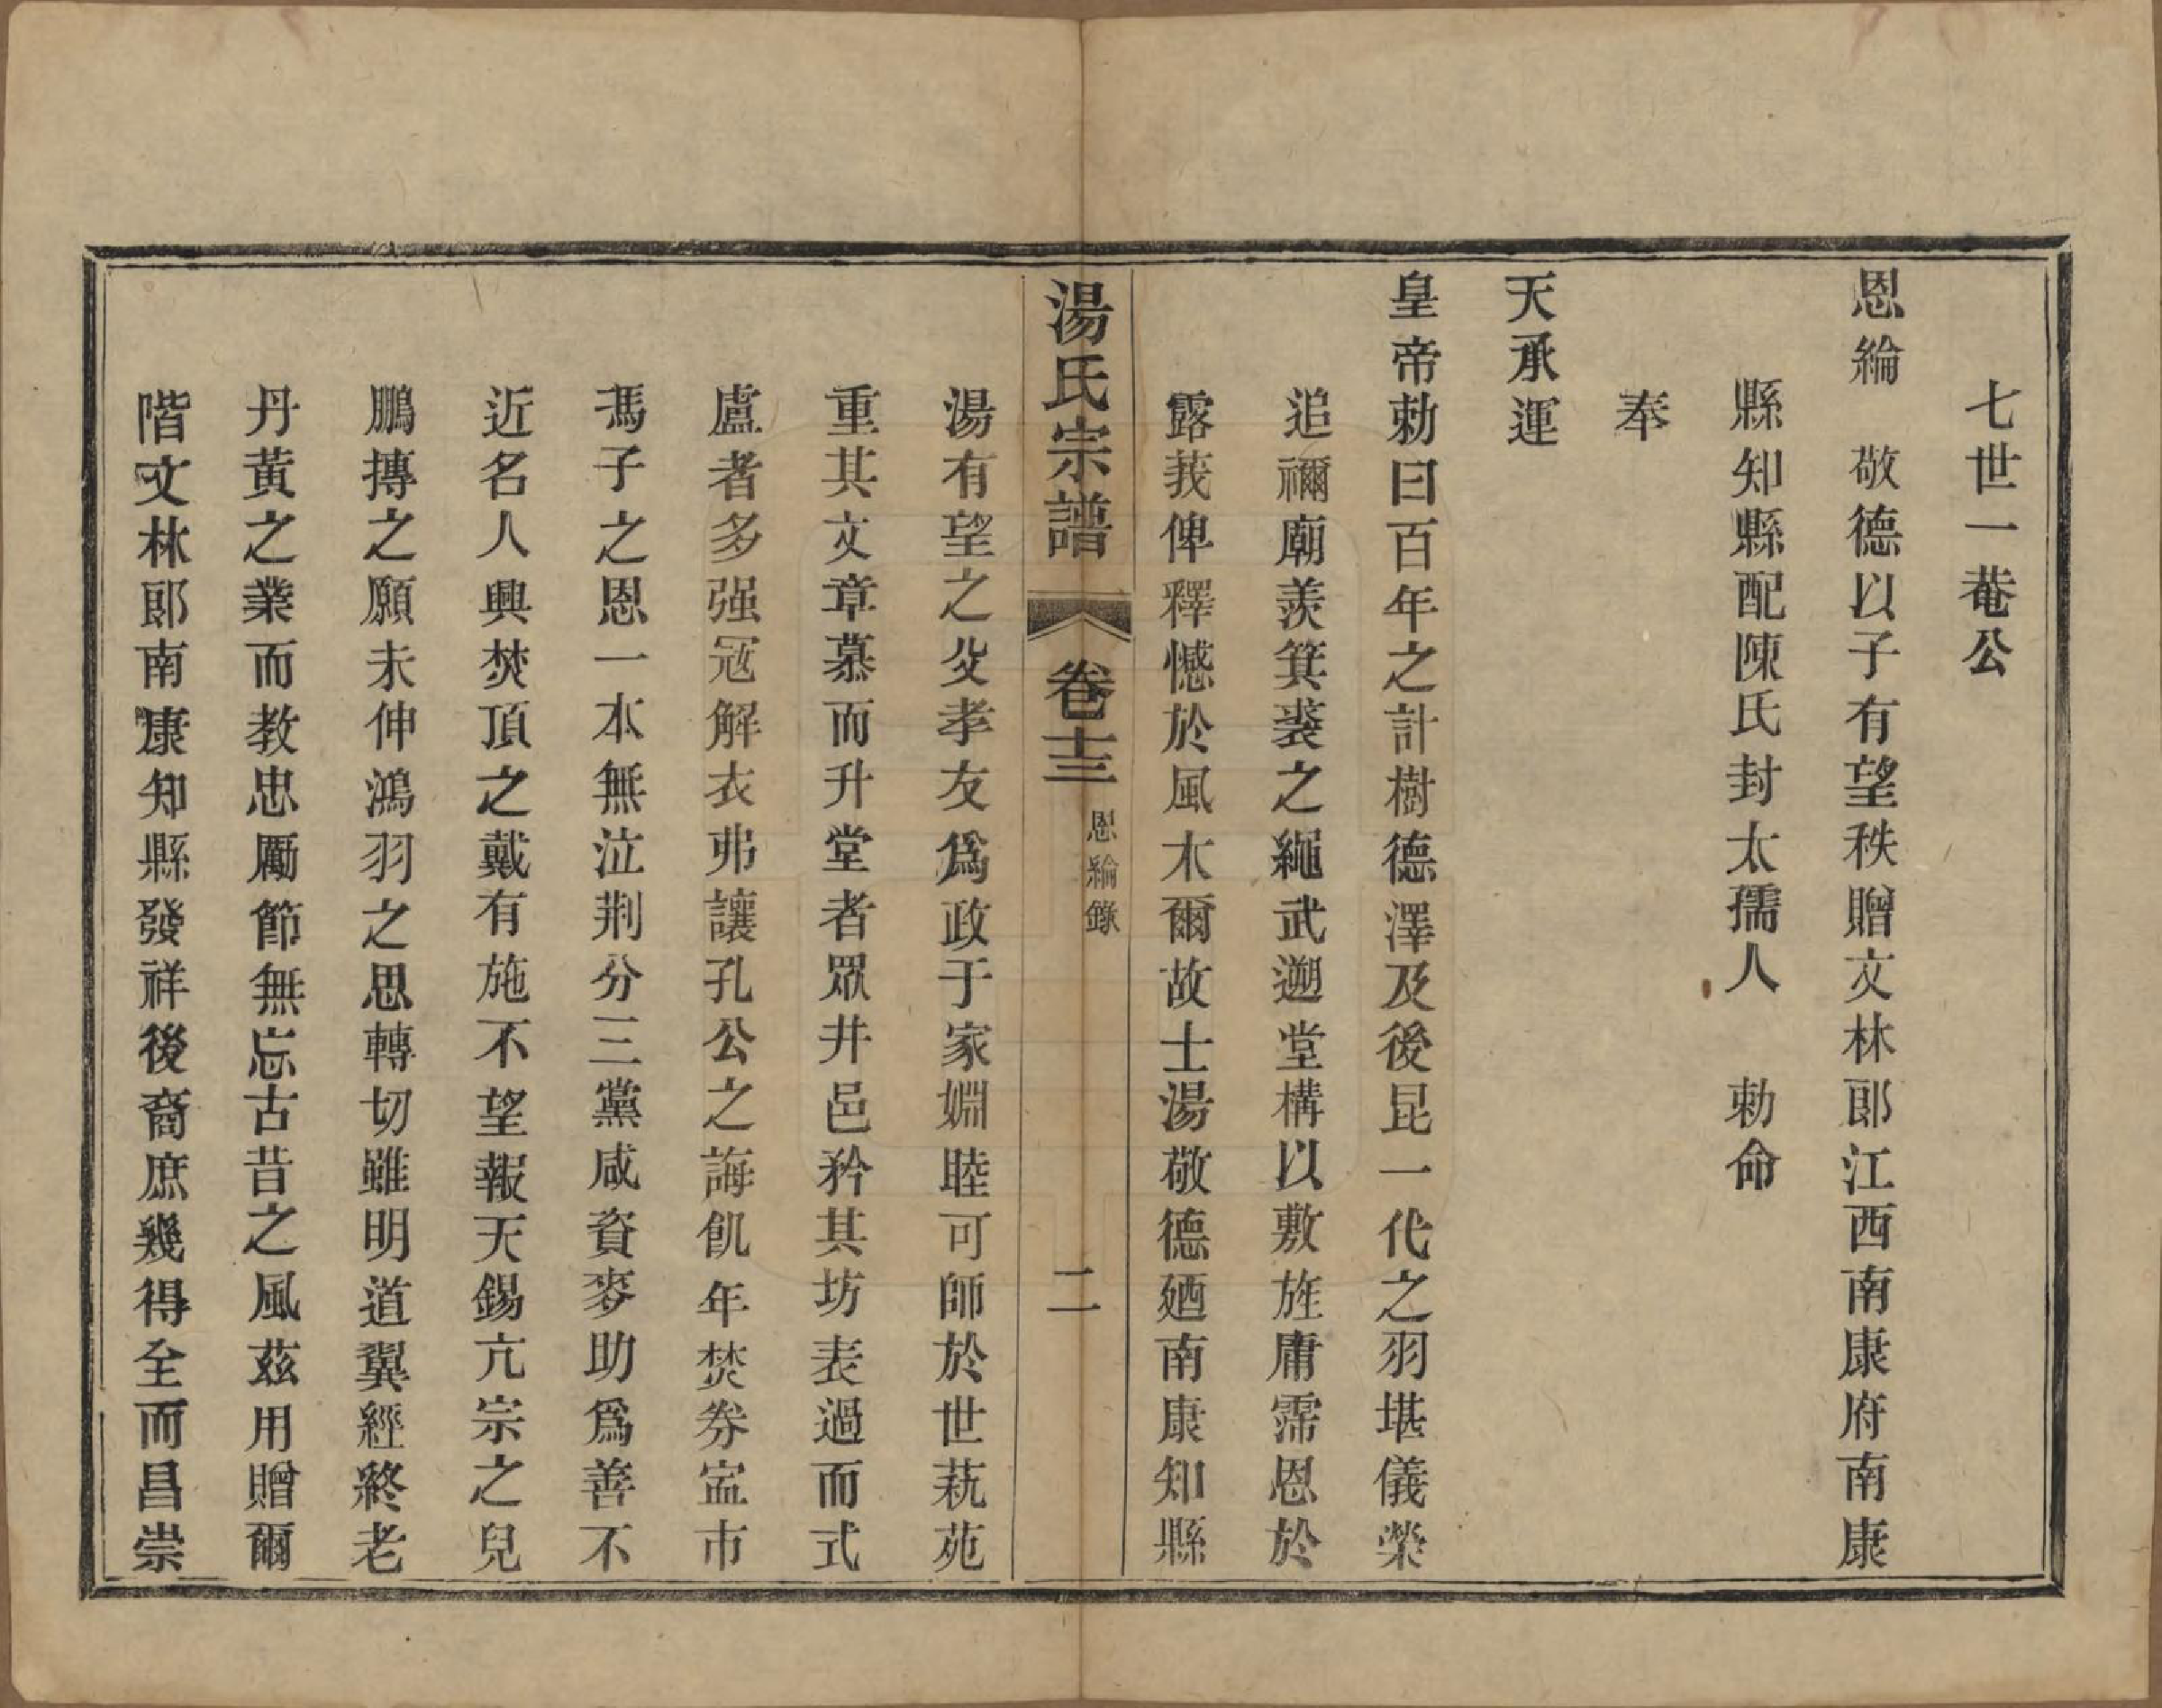 七世一菴公
恩綸　敬德以子有望秩贈文林郎江西南康府南康
縣知縣配陳氏封太孺人　勅命
奉
天承運
皇帝勅曰百年之計樹德澤及後昆一代之羽堪儀榮
追禰廟羨箕裘之繩武遡堂構以敷旌庸霈恩於
露莪俾釋憾於風木爾故士湯敬德廼南康知縣
湯氏宗譜　卷十三　恩綸錄　二
湯有望之父孝友爲政于家婣睦可師於世萟苑
重其文章慕而升堂者眾井邑矜其坊表過而式
盧者多强冦解衣弗讓孔公之誨飢年焚券寍市
馮子之恩一本無泣荆分三黨咸資麥助爲善不
近名人興焚頂之戴有施不望報天錫亢宗之兒
鵬摶之願未伸鴻羽之思轉切雖明道翼經終老
丹黄之業而教忠勵節無忘古昔之風茲用贈爾
階文林郎南康知縣發祥後裔庶幾得全而昌崇